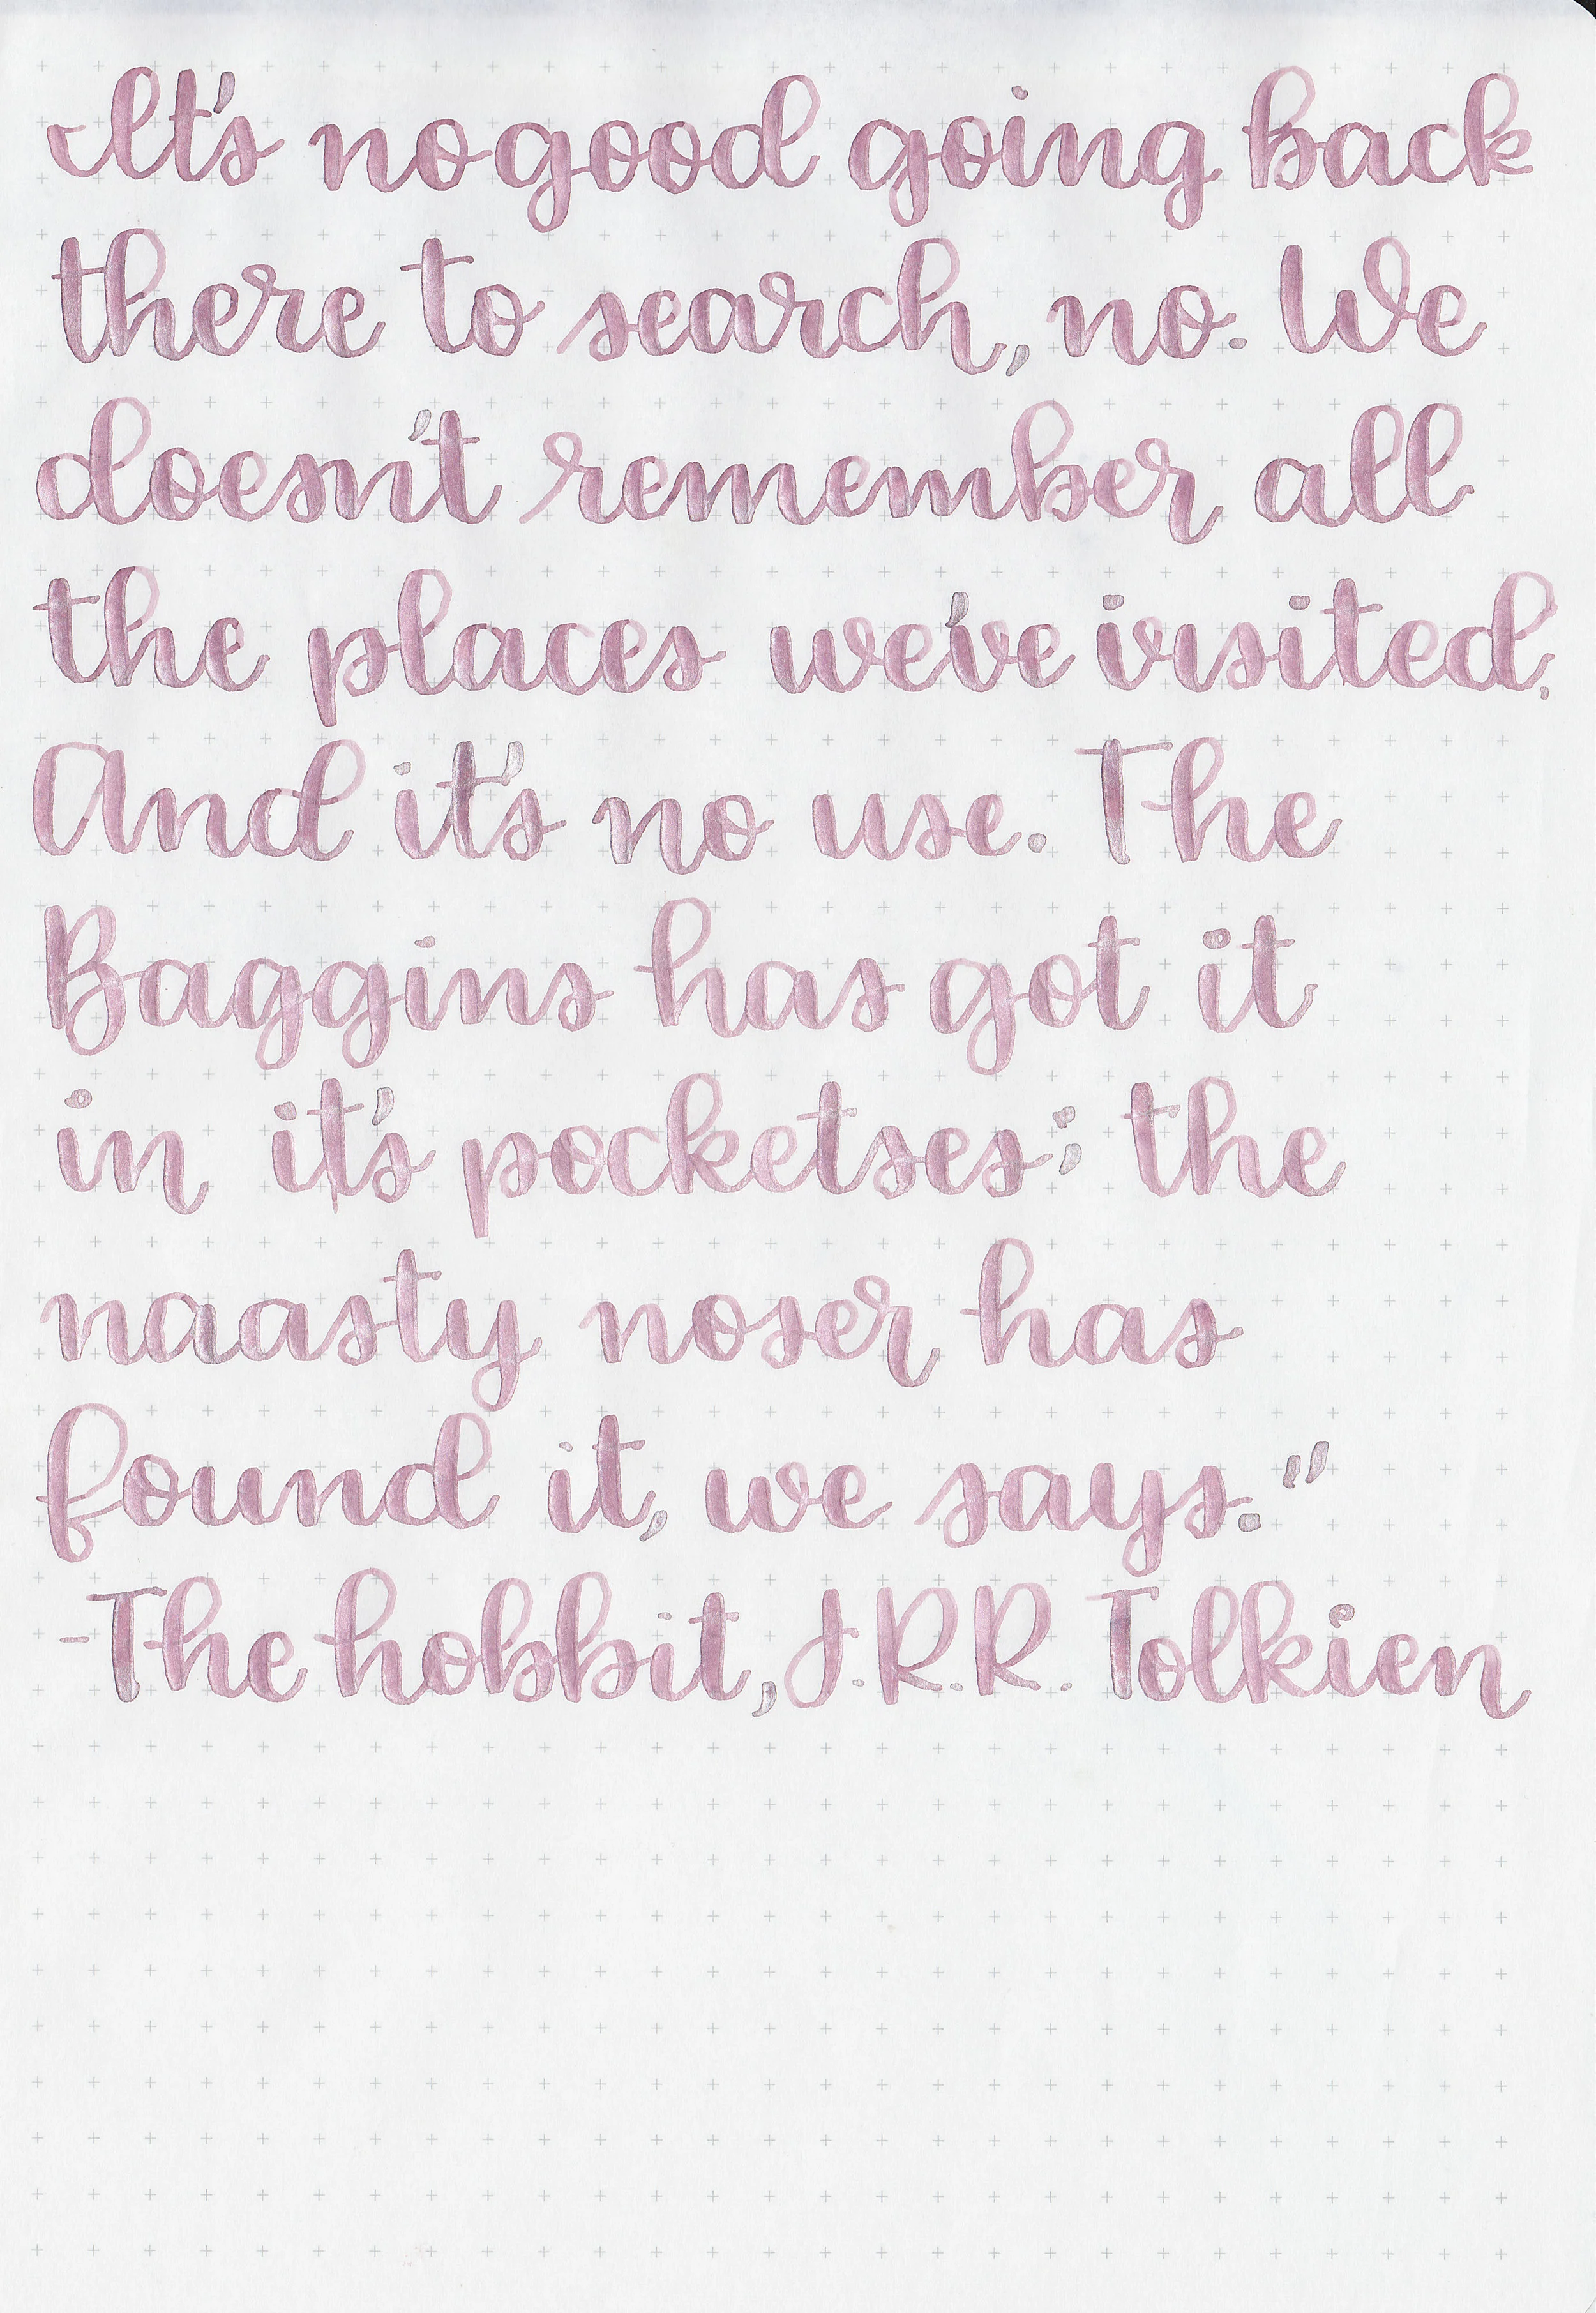 It's no good going back
there to search, no. We
doesn't remember all
the places we've visited.
And it's no use. The
Baggins has got it
in it's pocketses; the
naasty noser has
found it, we says."
-The hobbit, J.R.R. Tolkien